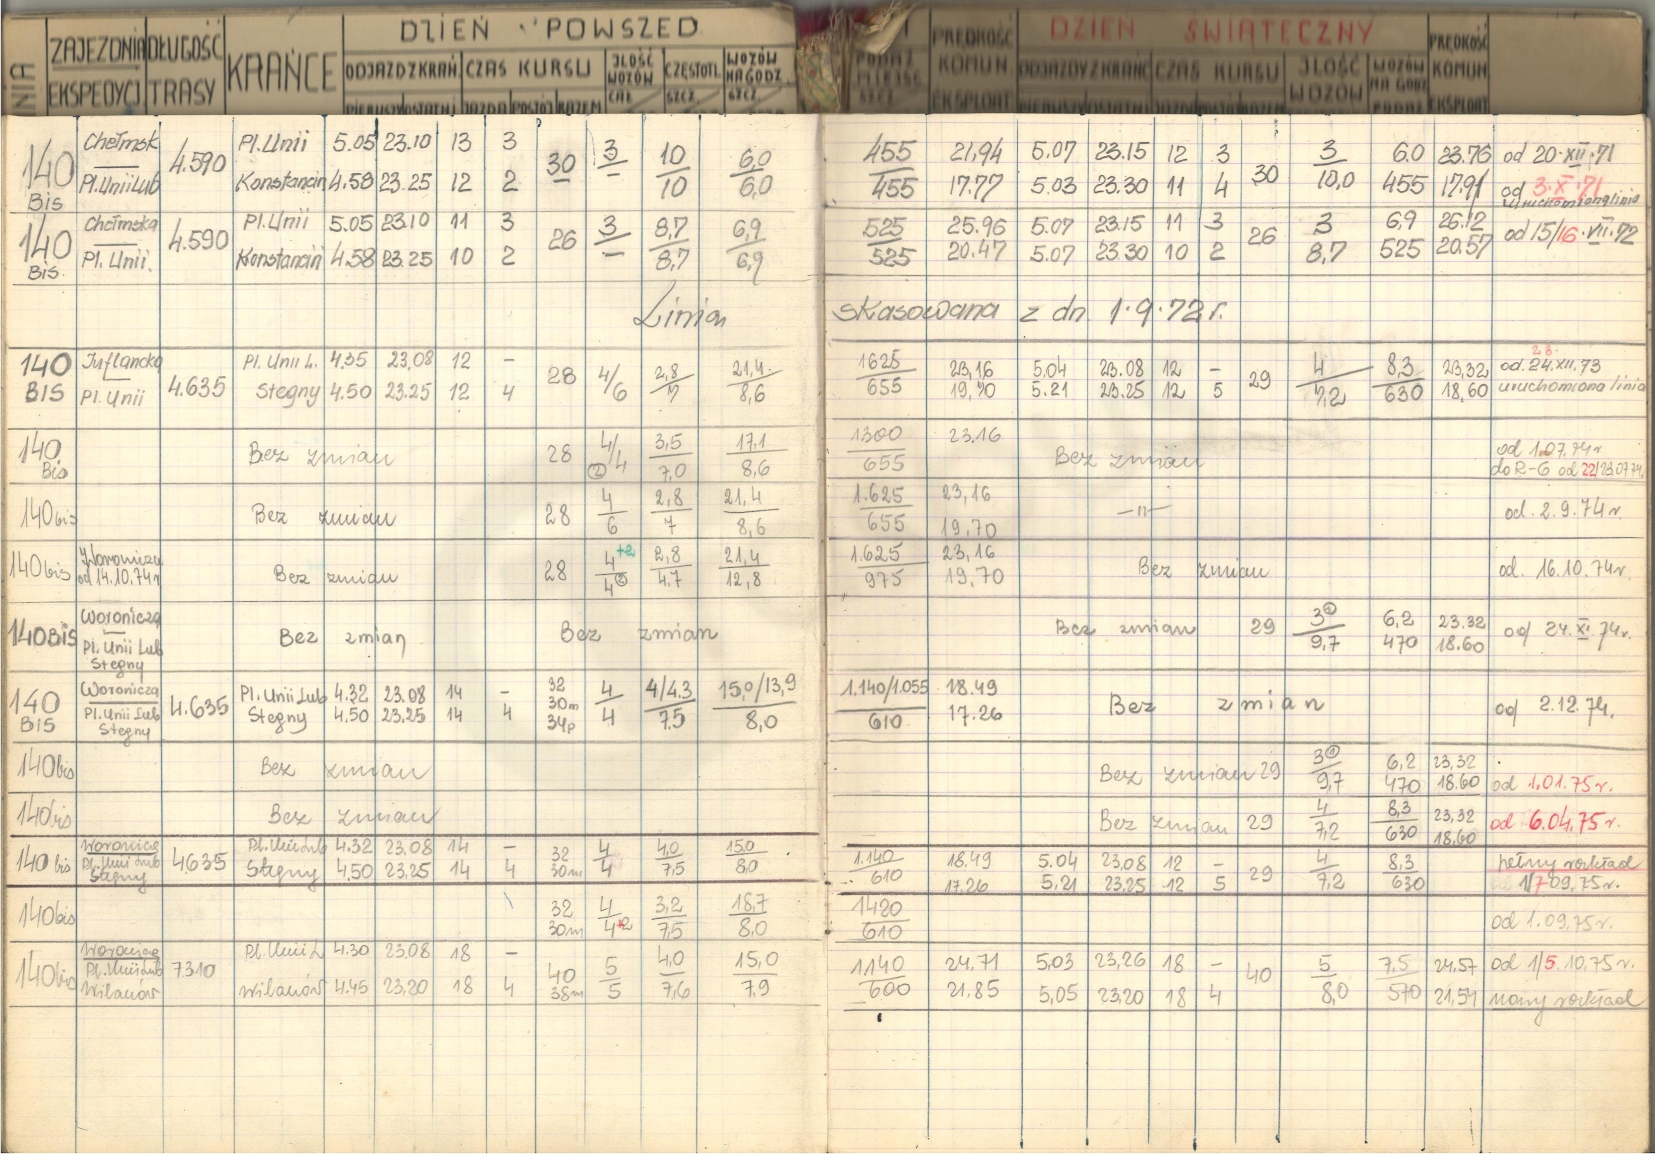 DZIEŃ POWSZED
DZIEŃ ŚWIĄTECZNY
ZAJEZDNIA DŁUGOŚĆ KRAŃCE ODJAZD Z KRAŃ. CZAS KURSU ILOŚĆ WOZÓW CZĘSTOTL. WOZÓW NA GODZ. PRĘDKOŚĆ KOMUN ODJAZDY Z KRAŃC CZAS KURSU ILOŚĆ WOZÓW WOZÓW NA GODZ PRĘDKOŚĆ KOMUN
EKSPEDYCJ TRASY SZCZ. SZCZ. EKSPLOAT EKSPLOAT
140 Bis Chełmsk 4.590 Pl. Unii 5.05 23.10 13 3 30 3 10 6,0 455 21,94 5.07 23.15 12 3 30 3 6.0 23.76 od 20.XII.71
Pl. Unii Lub Konstancin 4.58 23.25 12 2 – 10 6,0 455 17.77 5.03 23.30 11 4 10,0 455 17.91 od 3.X.71
uruchomiona linia
140 Bis. Chełmska 4.590 Pl. Unii 5.05 23.10 11 3 26 3 8,7 6,9 525 25.96 5.07 23.15 11 3 26 3 6,9 26.12 od 15/16.VII.72
Pl. Unii. Konstancin 4.58 23.25 10 2 – 8,7 6,9 525 20.47 5.07 23.30 10 2 8,7 525 20.57
Linia skasowana z dn 1.9.72 r.
140 BIS Inflancka 4.635 Pl. Unii L. 4.35 23,08 12 – 28 4/6 2,8 21,4 1625 23,16 5.04 23.08 12 – 29 4 8,3 23,32 23. od 24.XII.73
Pl. Unii Stegny 4.50 23.25 12 4 7 8,6 655 19,70 5.21 23.25 12 5 7,2 630 18,60 uruchomiona linia
140 Bis Bez zmian 28 4/4 ② 3,5 17,1 1300 23.16 Bez zmian od 1.07.74r
7,0 8,6 655 do R-6 od 22/23.07.74.
140 bis Bez zmian 28 4 2,8 21,4 1.625 23,16 –〃– od. 2.9.74r.
6 7 8,6 655 19,70
140 bis Woronicza 28 4 +2 2,8 21,4 1.625 23,16
od 14.10.74r Bez zmian 4② 4.7 12,8 975 19,70 Bez zmian od. 16.10.74r.
140 BIS Woronicza Bez zmian Bez zmian Bez zmian 29 3① 6,2 23.32 od 24.XI.74r.
Pl. Unii Lub 9,7 470 18.60
Stegny
140 BIS Woronicza 4.635 Pl. Unii Lub 4.32 23.08 14 – 32 4 4/4.3 15,0/13,9 1.140/1.055 18.49 Bez zmian od 2.12.74.
Pl. Unii Lub Stegny 4.50 23.25 14 4 30m 4 7.5 8,0 610 17.26
Stegny 34p
140 bis Bez zmian Bez zmian 29 3① 6,2 23,32
9,7 470 18.60 od 1.01.75r.
140 bis Bez zmian Bez zmian 29 4 8,3 23,32 od 6.04.75r.
7,2 630 18.60
140 bis Woronicz 4635 Pl. Unii Lub 4.32 23,08 14 – 32 4 4,0 15,0 1.140 18,49 5.04 23,08 12 – 29 4 8,3 pełny rozkład
Pl. Unii Lub Stegny 4.50 23,25 14 4 30m 4 7,5 8,0 610 17.26 5,21 23.25 12 5 7,2 630 1/7 09,75r.
Stegny
140 bis 32 4 3,2 18,7 1420 od 1.09,75r.
30m 4+2 7,5 8,0 610
140 bis Woronicza 7310 Pl. Unii L 4.30 23,08 18 – 40 5 4,0 15,0 1.140 24.71 5.03 23,26 18 – 40 5 7,5 24.57 od 1/5.10,75r.
Pl. Unii Lub Wilanów 4.45 23,20 18 4 38m 5 7,6 7,9 600 21,85 5,05 23.20 18 4 8,0 570 21,54 nowy rozkład
Wilanów